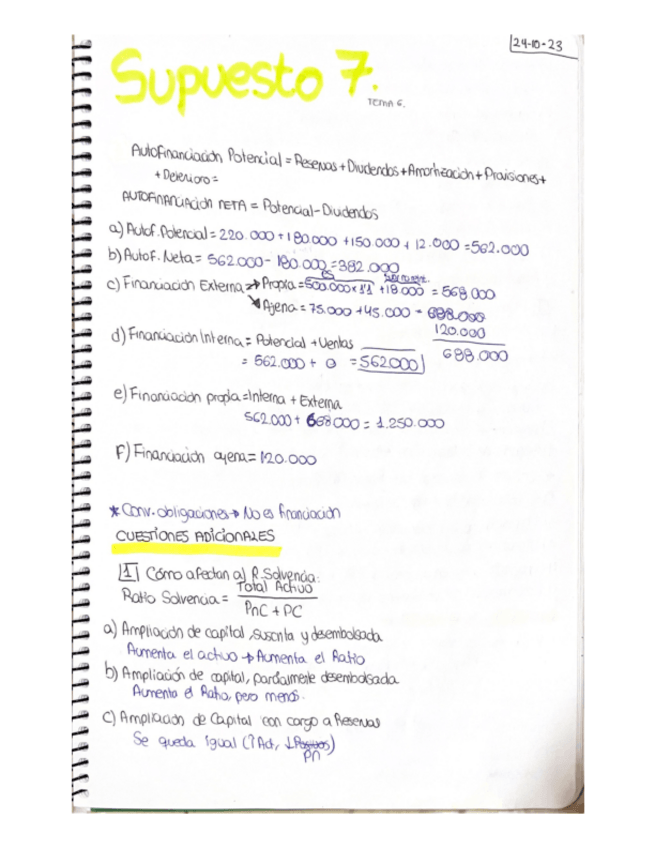 24-10-23
Supuesto 7.
TEMA 6.
Autofinanciación Potencial = Reservas + Dividendos + Amortización + Provisiones +
+ Deterioro =
AUTOFINANCIACIÓN NETA = Potencial - Dividendos
a) Autof. Potencial = 220.000 + 180.000 + 150.000 + 12.000 = 562.000
b) Autof. Neta = 562.000 - 180.000 = 382.000
c) Financiación Externa → Propia = 500.000 x 1'1 + 18.000 = 568.000
Ajena = 75.000 + 45.000 =
120.000
688.000
d) Financiación Interna = Potencial + Ventas
= 562.000 + 0 = 562.000
e) Financiación propia = Interna + Externa
562.000 + 688.000 = 1.250.000
F) Financiación ajena = 120.000
* Conv. obligaciones → No es financiación
CUESTIONES ADICIONALES
1 Cómo afectan al R. Solvencia:
Ratio Solvencia = Total Activo
PnC + PC
a) Ampliación de capital, suscrita y desembolsada
Aumenta el activo → Aumenta el Ratio
b) Ampliación de capital, parcialmente desembolsada
Aumenta el Ratio, pero menos.
c) Ampliación de Capital con cargo a Reservas
Se queda igual (↑Act, ↓Pasivos)
Pn